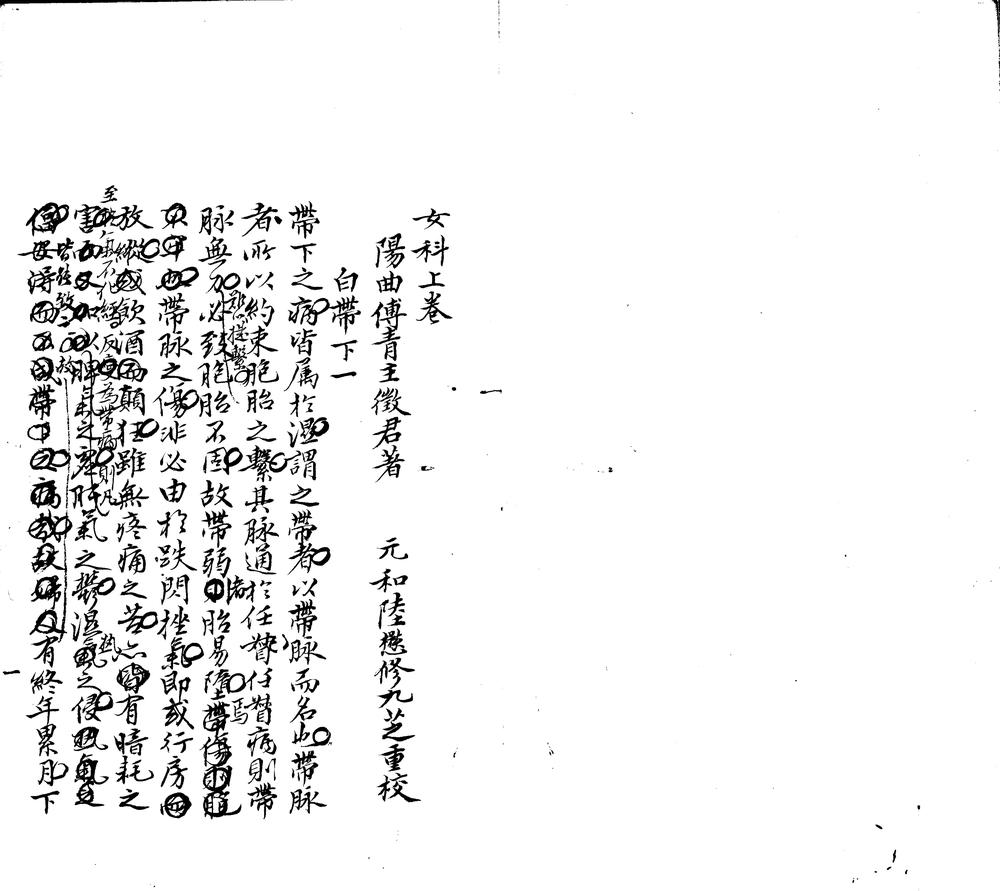 女科上卷
陽曲傅青主徵君著 元和陸懋修九芝重校
白帶下一
帶下之病皆属於湿謂之帶者以帶脉而名也帶脉
者所以約束胞胎之繫其脉通於任督任督病則帶
脉無力必致胞胎不固故帶弱者胎易墮焉帶傷則胞
帶脉之傷非必由於跌閃挫氣即或行房而
放縱或飲酒而顛狂雖無疼痛之苦亦皆有暗耗之
害而又加以脾氣之虛肝氣之鬱湿氣之侵熱氣
得而不成帶下之病哉故婦人有終年累月下
一